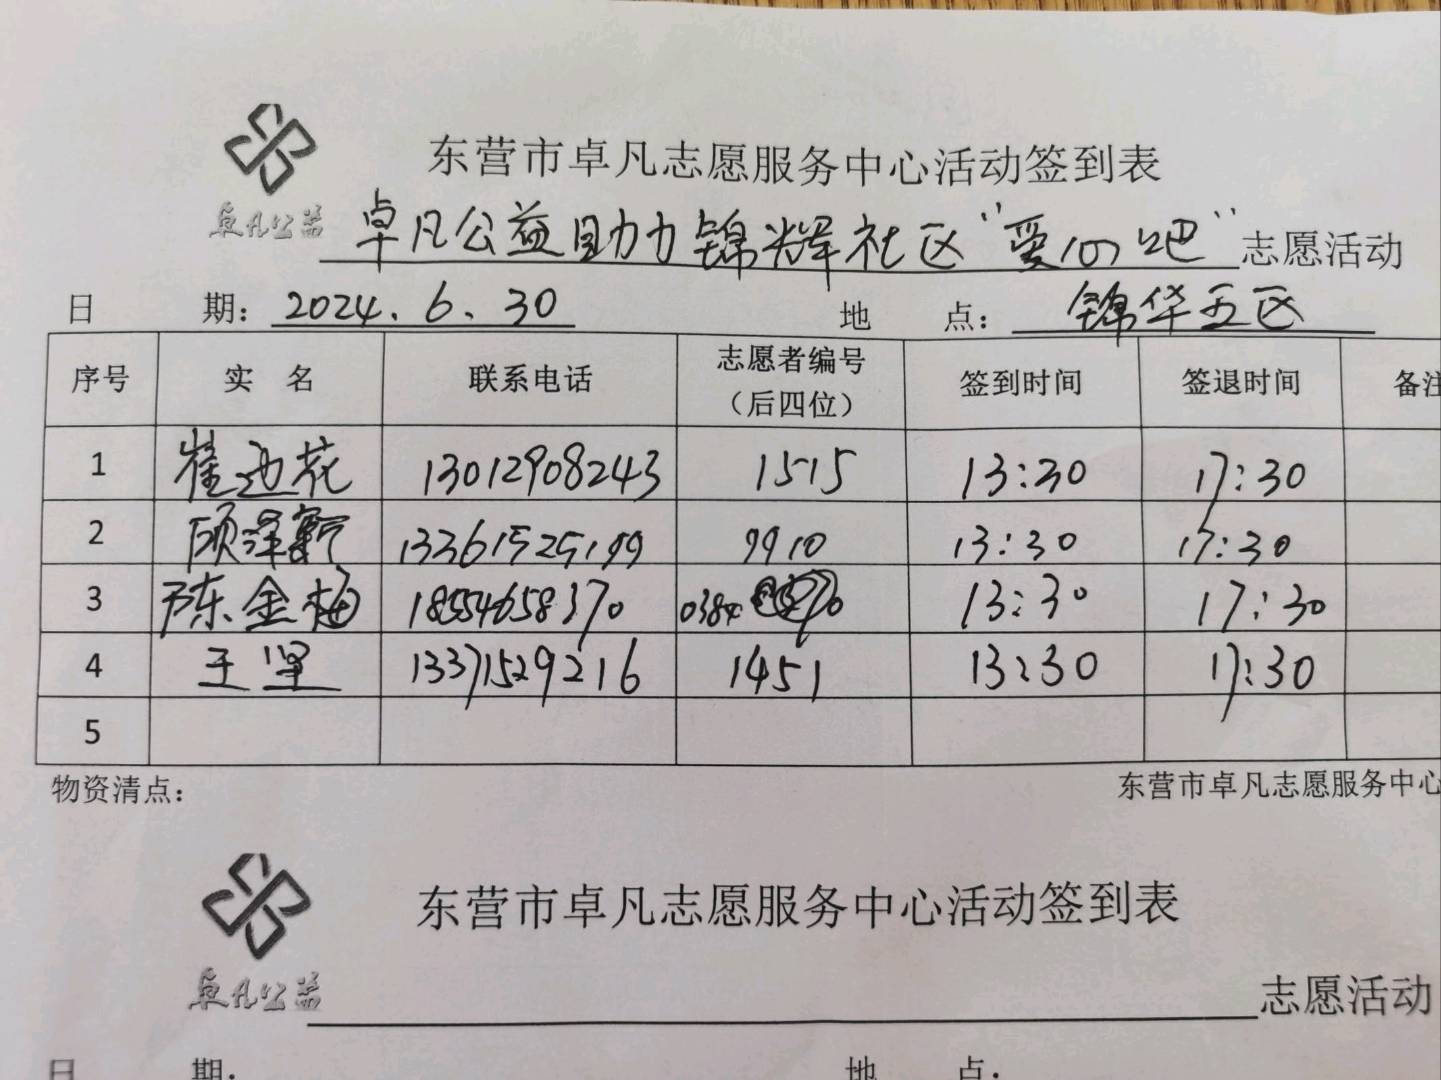 东营市卓凡志愿服务中心活动签到表
卓凡公益
卓凡公益助力锦辉社区"爱心吧"志愿活动
日 期：2024.6.30 地 点：锦华五区
序号 实 名 联系电话 志愿者编号（后四位） 签到时间 签退时间 备注
1 崔迎花 13012908243 1515 13:30 17:30
2 顾泽 13361525199 9910 13:30 17:30
3 陈金梅 18554658370 0384 13:30 17:30
4 王坚 13371529216 1451 13:30 17:30
5
物资清点： 东营市卓凡志愿服务中心
东营市卓凡志愿服务中心活动签到表
卓凡公益
志愿活动
日 期： 地 点：